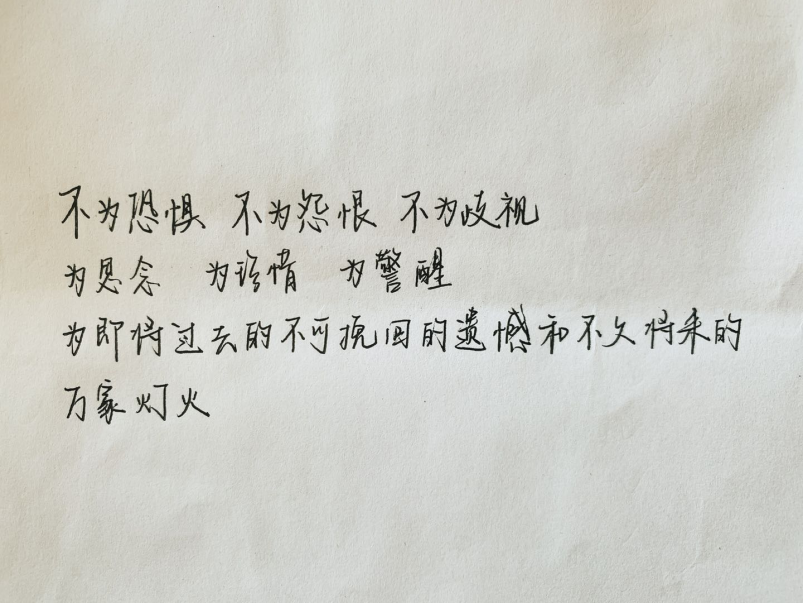 不为恐惧 不为怨恨 不为歧视
为思念 为珍惜 为警醒
为即将过去的不可挽回的遗憾和不久将来的
万家灯火